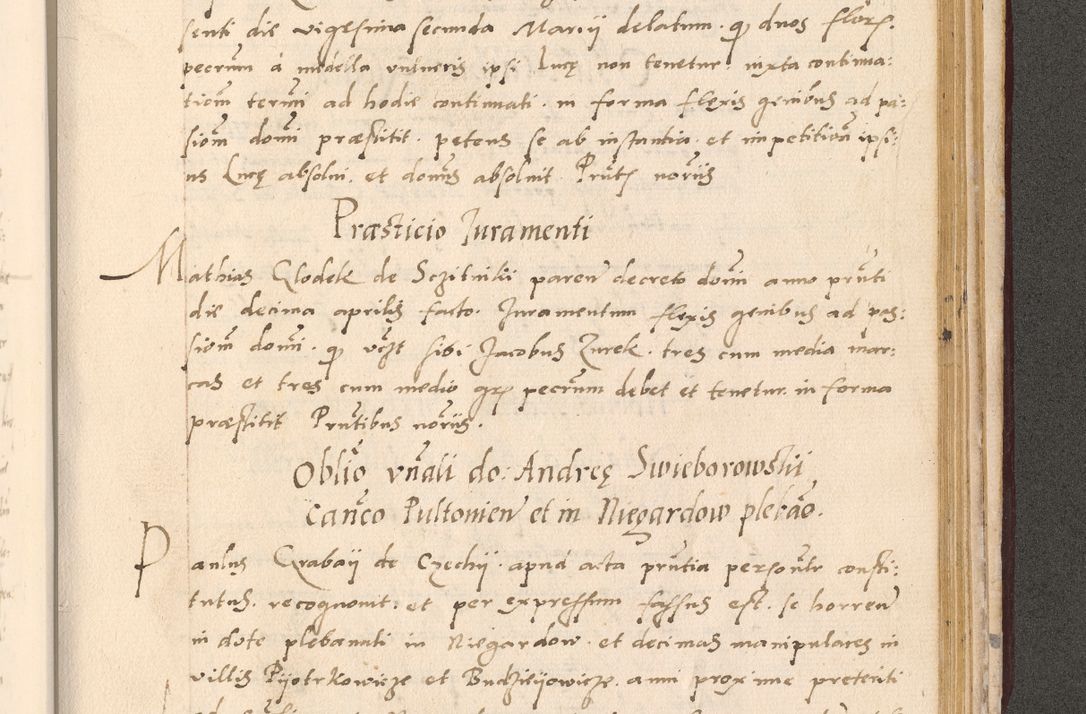 senti die vigesima secunda Marcii delatum. q̃ duos flore.
pecum̃ a medella vulneris ipsi Lucę non tenetur. iuxta continua:
tiom̃ termi ad hodie continuati. in forma flexis genibus ad pas:
siom̃ domĩ præstitit. petens se ab instantia. et impetitiom̃ ipsi:
us Lucę absolui. et domĩs absoluit. Prñts noriis
Præsticio Iuramenti
Mathias Glodek de Sczitniki paren̄ decreto domĩ anno prñti
die decima aprilis facto. Iuramentum flexis genibus ad pas:
siom̃ domĩ. q̃ vczt sibi Jacobus Zurek. tres cum media mar:
cas et tres cum medio gr̃ pecum̃ debet et tenetur. in forma
præstitit Prñtibus noriis.
Oblĩo vñali do: Andreę Swieborowskii
Canco Pultouien̄ et in Niegardow plebão.
Paulus Grabaij de Czechij. apud acta prñtia personlr consti:
tutus. recognouit. et per expressum fassus est. se horren̄
in dote plebanali in Niegardow. et decimas manipulares in
villis Pijotrkowicze et Buchzijowicze. anni proxime preteriti